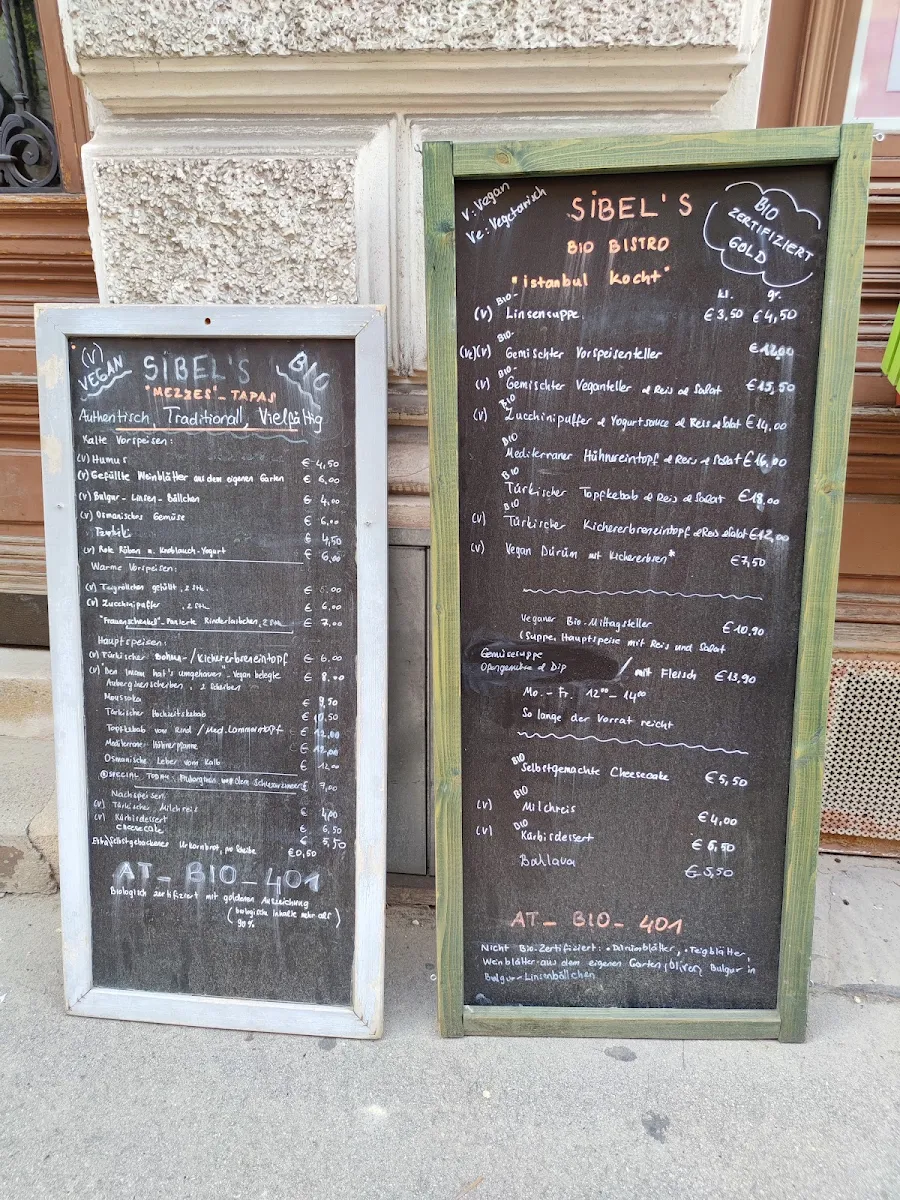 (V)
VEGAN
SİBEL'S
BIO
"MEZZES"- TAPAS
Authentisch, Traditionall, Vielfältig
Kalte Vorspeisen:
(V) Humus € 4,50
(V) Gefüllte Weinblätter aus dem eigenen Garten € 6,00
(V) Bulgur-Linsen-Bällchen € 4,00
(V) Osmanisches Gemüse € 6,00
€ 4,50
(V) Rote Rüben u. Knoblauch-Yogurt € 6,00
Warme Vorspeisen:
(V) Teigröllchen gefüllt, 2 Stk.
(V) Zucchinipuffer , 2 Stk. € 6,00
"Frauenschenkel"-Panierte Rinderlaibchen, 2 Stk € 7,00
Hauptspeisen:
(V) Türkischer Bohnen-/Kichererbseneintopf € 6.00
(V) "Den Imam hat's umgehauen-Vegan belegte € 8,00
Auberginenscheiben, 2 Scheiben
Moussaka € 9,50
Türkischer Hochzeitskebab € 10,50
Topfkebab vom Rind / Med. Lammeintopf € 12,00
Mediterrane Hühnerpfanne € 12,00
Osmanische Leber vom Kalb € 12,00
SPECIAL TODAY: € 7,00
Nachspeisen:
(V) Türkischer Milchreis € 4,00
(V) Kürbisdessert € 6,50
Cheesecake € 5,50
Selbstgebackener Urkornbrot, pro Scheibe €0,50
AT_ BIO_401
Biologisch zertifiziert mit goldener Auszeichnung
(biologische Inhalte mehr als
90%)
V: Vegan
Ve: Vegetarisch
SİBEL'S
BIO BISTRO
"istanbul kocht"
BIO
ZERTIFIZIERT
GOLD
kl. gr.
(V) BIO- Linsensuppe €3,50 €4,50
(Ve)(V) BIO- Gemischter Vorspeisenteller €12,00
(V) BIO- Gemischter Veganteller & Reis & Salat €15,50
(V) BIO Zucchinipuffer & Yogurtsauce & Reis & Salat €14,00
BIO Mediterraner Hühnereintopf & Reis & Salat €16,00
BIO Türkischer Topfkebab & Reis & Salat €18,00
(V) BIO Türkischer Kichererbseneintopf & Reis & Salat €12,00
(V) Vegan Dürüm mit Kichererbsen* €7,50
Veganer Bio-Mittagsteller €10,90
(Suppe, Hauptspeise mit Reis und Salat
Gemüsesuppe
Ofengemüse & Dip / mit Fleisch €13,90
Mo.- Fr. 12⁰⁰-14⁰⁰
So lange der Vorrat reicht
BIO Selbstgemachte Cheesecake €5,50
(V) BIO Milchreis €4,00
(V) BIO Kürbisdessert €6,50
Baklava €5,50
AT_ BIO_ 401
Nicht Bio-Zertifiziert: •Dürümblätter, •Teigblätter,
Weinblätter aus dem eigenen Garten, Oliven, Bulgur in
Bulgur-Linsenbällchen